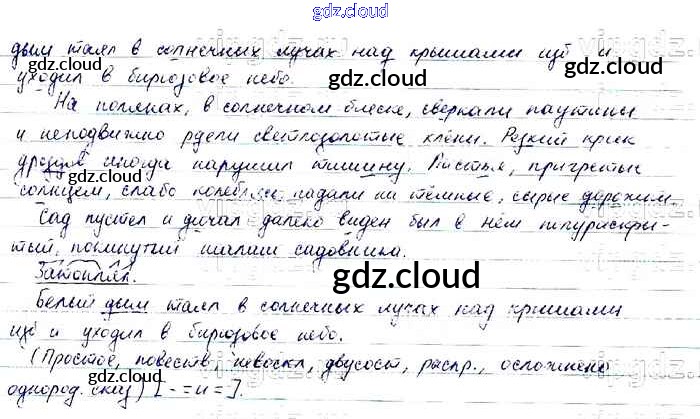 gdz.cloud
дым таял в солнечных лучах над крышами изб и
уходил в бирюзовое небо.
На полянах, в солнечном блеске, сверкали паутины
и неподвижно рдели светлозолотые клёны. Резкий крик
дроздов иногда нарушал тишину. Листья, пригретые
солнцем, слабо колеблясь, падали на тёмные, сырые дорожки.
Сад пустел и дичал далеко виден был в нём полураскры-
тый, покинутый шалаш садовника.
Затоплял.
Белый дым таял в солнечных лучах над крышами
изб и уходил в бирюзовое небо.
(Простое, повеств, невоскл, двусост, распр., осложнено
однород. сказ) [- = и =].
gdz.cloud
gdz.cloud
gdz.cloud
gdz.cloud
gdz.cloud
gdz.cloud
gdz.cloud
gdz.cloud